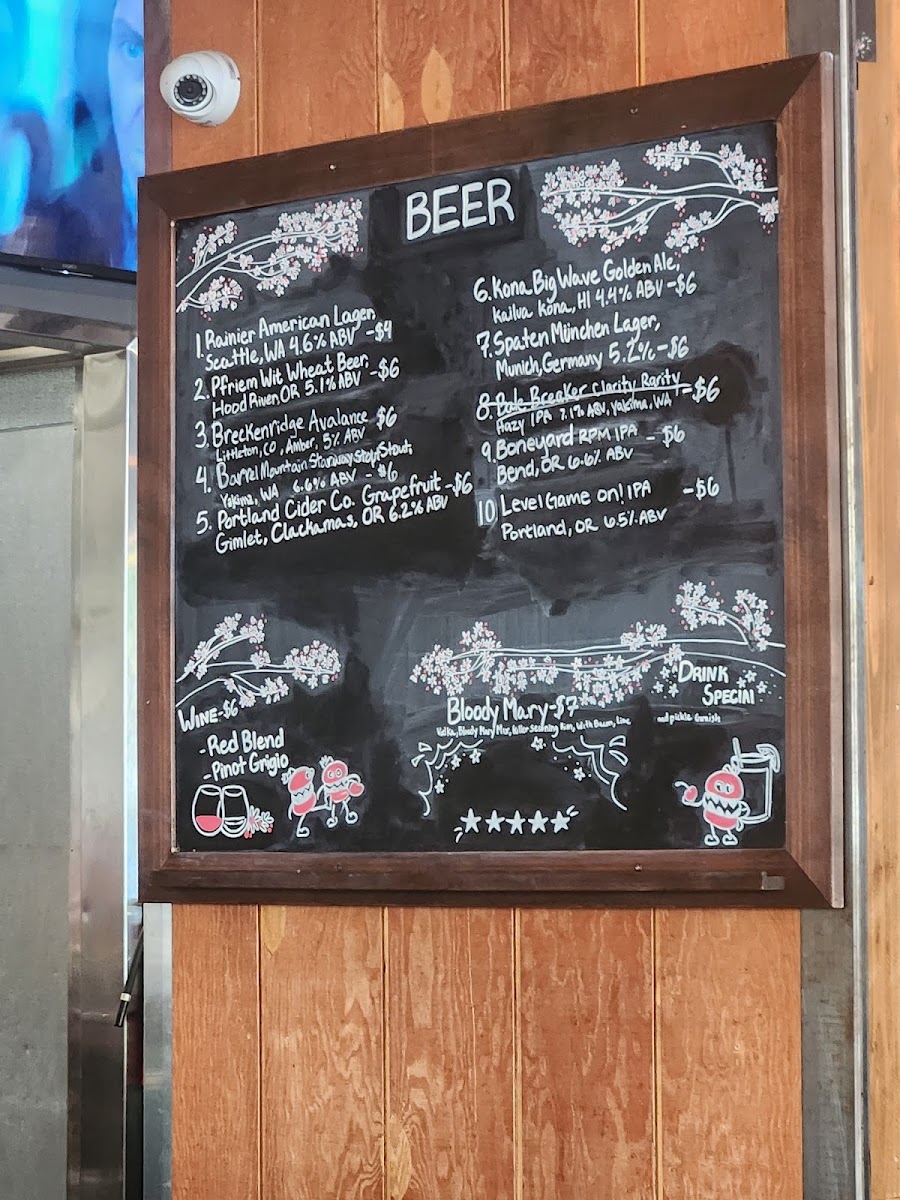 BEER
1. Rainier American Lager,
Seattle, WA 4.6% ABV -$4
2. Pfriem Wit Wheat Beer,
Hood River OR 5.1% ABV -$6
3. Breckenridge Avalance $6
Littleton, CO, Amber, 5% ABV
4. Barrel Mountain Stout,
Yakima, WA 6.6% ABV - $6
5. Portland Cider Co. Grapefruit -$6
Gimlet, Clackamas, OR 6.2% ABV
6. Kona Big Wave Golden Ale,
Kailua Kona, HI 4.4% ABV -$6
7. Spaten München Lager,
Munich, Germany 5.2% -$6
8. Bale Breaker Clarity Rarity -$6
Hazy IPA 7.1% ABV, Yakima, WA
9. Boneyard RPM IPA - $6
Bend, OR 6.6% ABV
10 Level Game on! IPA -$6
Portland, OR 6.5% ABV
WINE-$6
-Red Blend
-Pinot Grigio
DRINK
SPECIAL
Bloody Mary-$7
Vodka, Bloody Mary Mix, Seasoning Rim, With Bacon, Lime and pickle Garnish